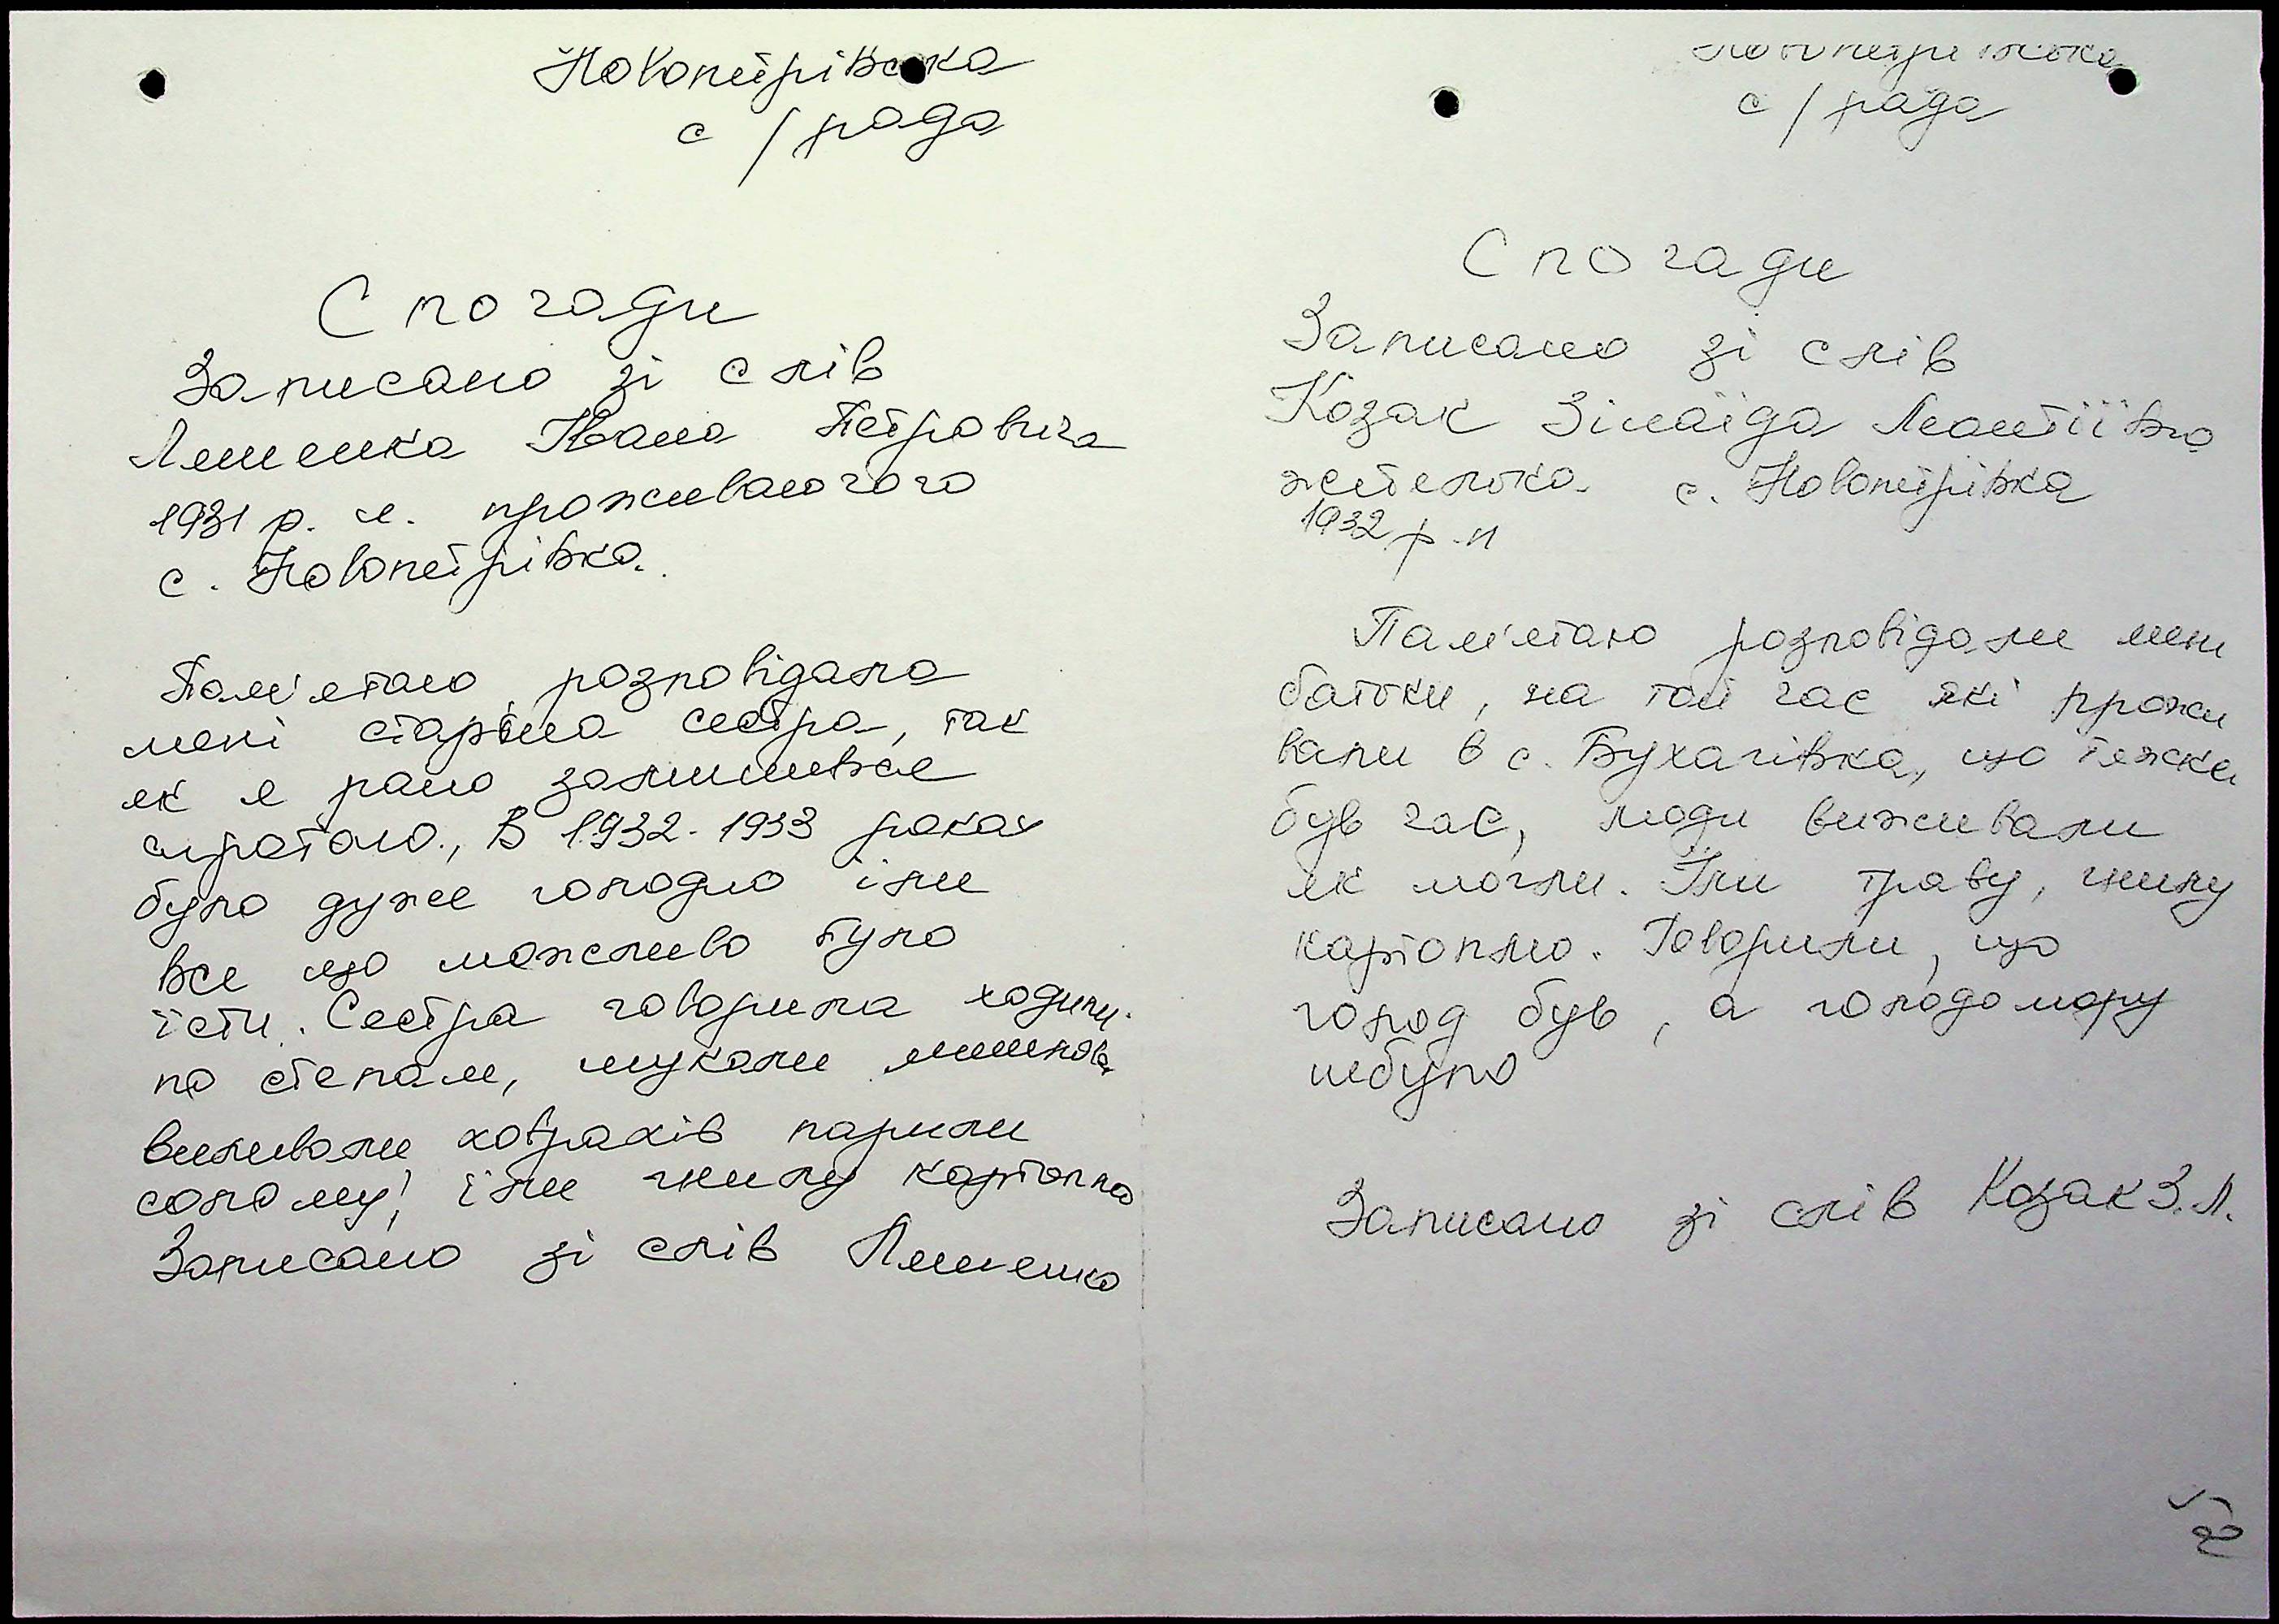 Новопетрівська
с/рада
Спогади
Записано зі слів
Ляшенка Івана Петровича
1931 р. н. проживаючого
с. Новопетрівка.
Пам'ятаю розповідала
мені старша сестра, так
як я рано залишився
сиротою., В 1932-1933 роках
було дуже голодно їли
все що можливо було
їсти. Сестра говорила ходили
по степам, шукали
виливали ховрахів парили
солому, їли гнилу картоплю
Записано зі слів Ляшенко
Новопетрівська
с/рада
Спогади
Записано зі слів
Козак Зінаїда Леонтіївна
жителька с. Новопетрівка
1932 р н
Пам'ятаю розповідали мені
батьки, на той час які прожи
вали в с. Бухачівка, що тяжки
був час, люди виживали
як могли. Їли траву, гнилу
картоплю. Говорили, що
голод був, а голодомору
небуло
Записано зі слів Козак З.Л.